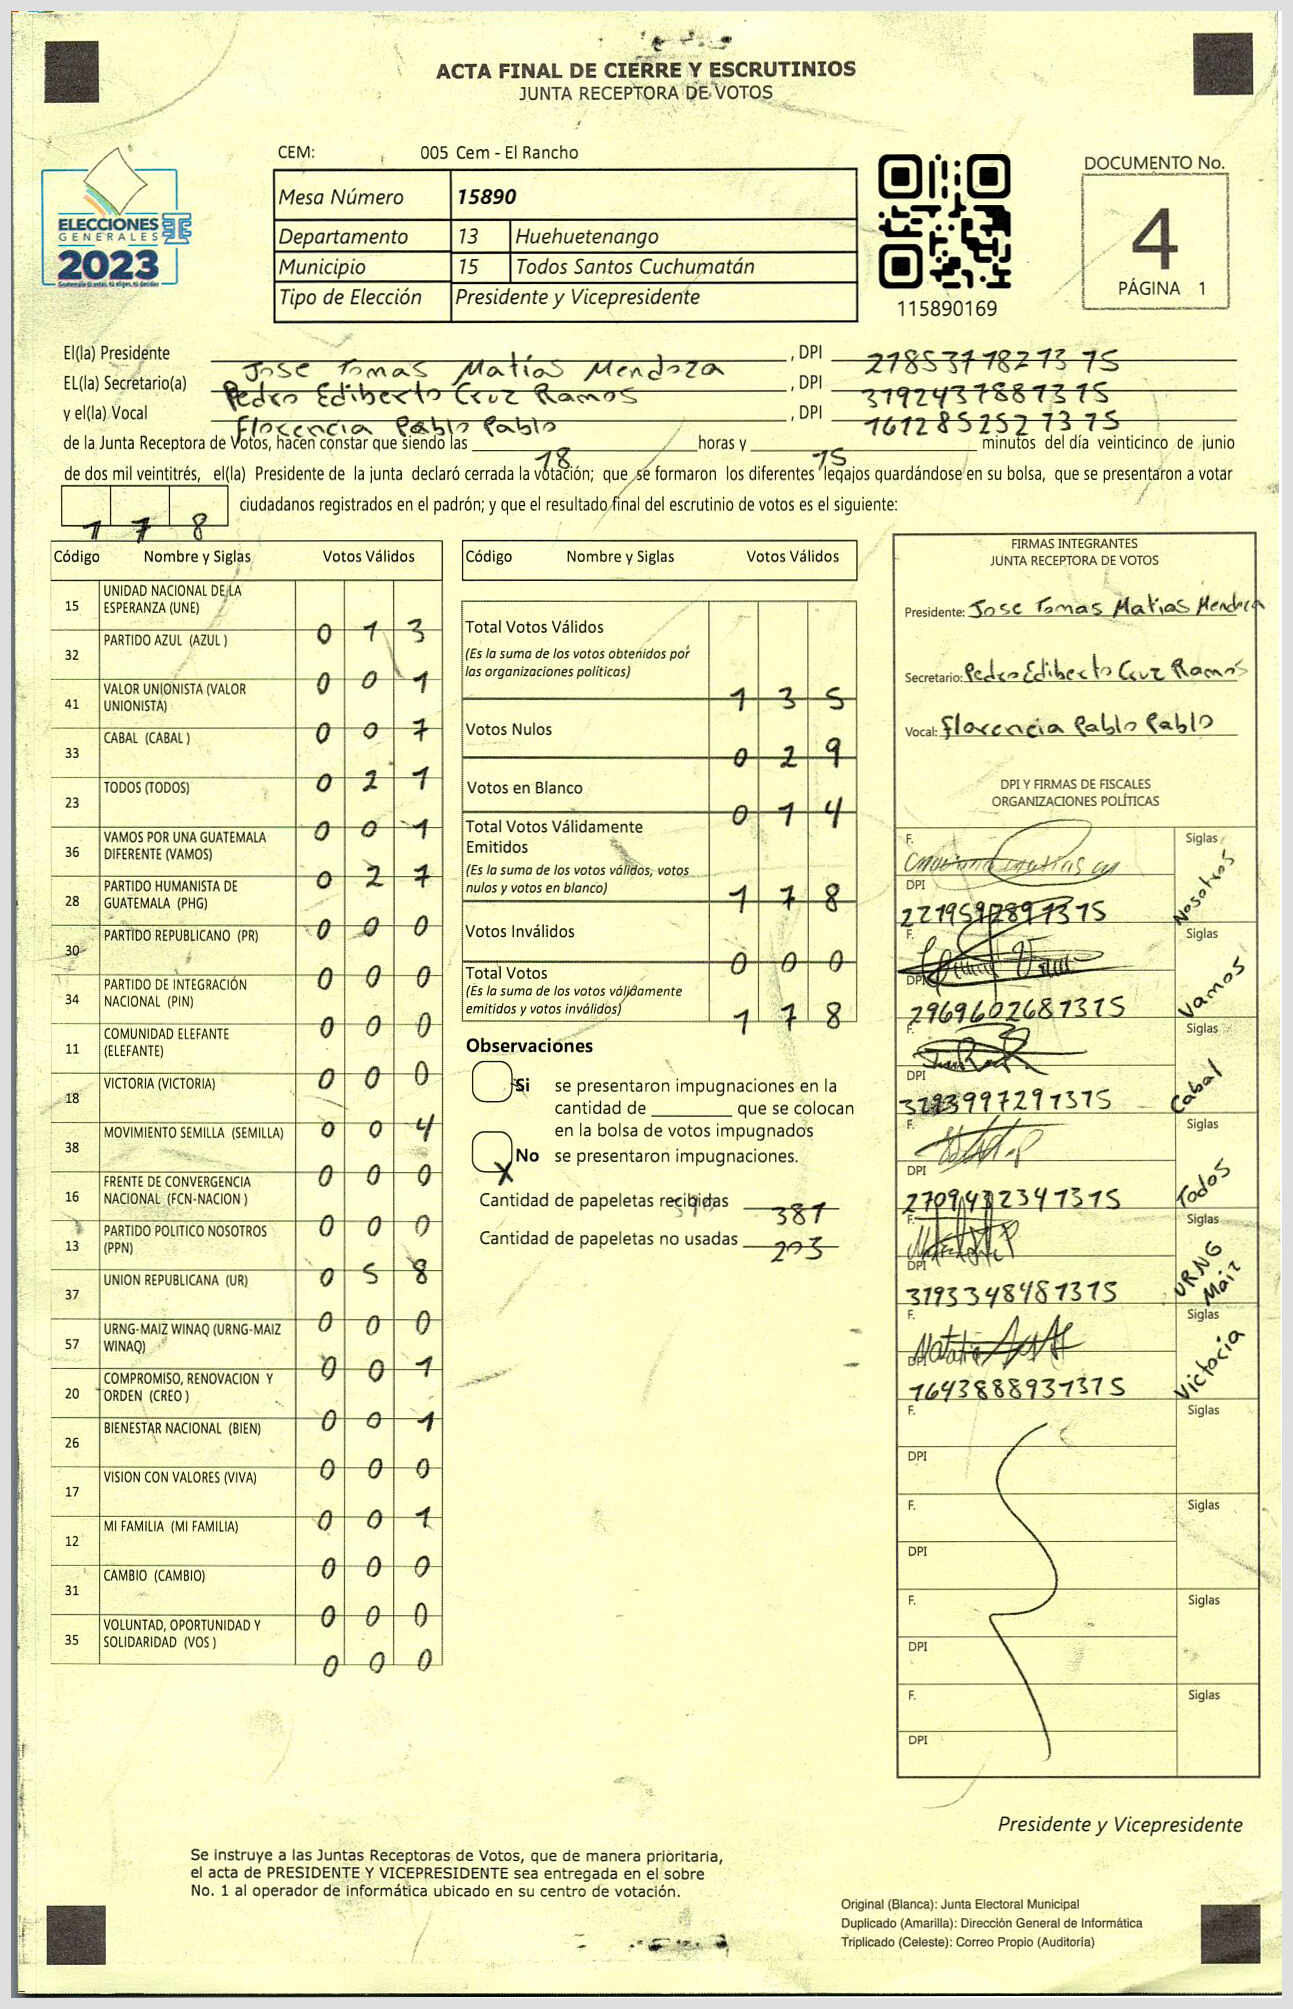 ACTA FINAL DE CIERRE Y ESCRUTINIOS
JUNTA RECEPTORA DE VOTOS
CEM: 005 Cem - El Rancho
ELECCIONES
GENERALES
2023
Mesa Número 15890
Departamento 13 Huehuetenango
Municipio 15 Todos Santos Cuchumatán
Tipo de Elección Presidente y Vicepresidente
115890169
DOCUMENTO No.
4
PÁGINA 1
El(la) Presidente Jose Tomas Matías Mendoza , DPI 2785371827375
EL(la) Secretario(a) Pedro Ediberto Cruz Ramos , DPI 3792437887375
y el(la) Vocal Florencia Pablo Pablo , DPI 1612852527375
de la Junta Receptora de Votos, hacen constar que siendo las 18 horas y 15 minutos del día veinticinco de junio
de dos mil veintitrés, el(la) Presidente de la junta declaró cerrada la votación; que se formaron los diferentes legajos guardándose en su bolsa, que se presentaron a votar
178 ciudadanos registrados en el padrón; y que el resultado final del escrutinio de votos es el siguiente:
Código Nombre y Siglas Votos Válidos
15 UNIDAD NACIONAL DE LA ESPERANZA (UNE) 0 1 3
32 PARTIDO AZUL (AZUL ) 0 0 1
41 VALOR UNIONISTA (VALOR UNIONISTA) 0 0 7
33 CABAL (CABAL ) 0 2 1
23 TODOS (TODOS) 0 0 1
36 VAMOS POR UNA GUATEMALA DIFERENTE (VAMOS) 0 2 7
28 PARTIDO HUMANISTA DE GUATEMALA (PHG) 0 0 0
30 PARTIDO REPUBLICANO (PR) 0 0 0
34 PARTIDO DE INTEGRACIÓN NACIONAL (PIN) 0 0 0
11 COMUNIDAD ELEFANTE (ELEFANTE) 0 0 0
18 VICTORIA (VICTORIA) 0 0 4
38 MOVIMIENTO SEMILLA (SEMILLA) 0 0 0
16 FRENTE DE CONVERGENCIA NACIONAL (FCN-NACION ) 0 0 0
13 PARTIDO POLITICO NOSOTROS (PPN) 0 5 8
37 UNION REPUBLICANA (UR) 0 0 0
57 URNG-MAIZ WINAQ (URNG-MAIZ WINAQ) 0 0 1
20 COMPROMISO, RENOVACION Y ORDEN (CREO ) 0 0 1
26 BIENESTAR NACIONAL (BIEN) 0 0 0
17 VISION CON VALORES (VIVA) 0 0 1
12 MI FAMILIA (MI FAMILIA) 0 0 0
31 CAMBIO (CAMBIO) 0 0 0
35 VOLUNTAD, OPORTUNIDAD Y SOLIDARIDAD (VOS ) 0 0 0
Código Nombre y Siglas Votos Válidos
Total Votos Válidos 1 3 5
(Es la suma de los votos obtenidos por
las organizaciones políticas)
Votos Nulos 0 2 9
Votos en Blanco 0 1 4
Total Votos Válidamente
Emitidos 1 7 8
(Es la suma de los votos válidos, votos
nulos y votos en blanco)
Votos Inválidos 0 0 0
Total Votos 1 7 8
(Es la suma de los votos válidamente
emitidos y votos inválidos)
Observaciones
Si se presentaron impugnaciones en la
cantidad de ________ que se colocan
en la bolsa de votos impugnados
X No se presentaron impugnaciones.
Cantidad de papeletas recibidas 381
Cantidad de papeletas no usadas 203
FIRMAS INTEGRANTES
JUNTA RECEPTORA DE VOTOS
Presidente: Jose Tomas Matias Mendoza
Secretario: Pedro Ediberto Cruz Ramos
Vocal: Florencia Pablo Pablo
DPI Y FIRMAS DE FISCALES
ORGANIZACIONES POLÍTICAS
F. Siglas Nosotros
DPI
F. Siglas Vamos
DPI 2969602681315
F. Siglas Cabal
DPI
F. Siglas Todos
DPI
F. Siglas URNG Maiz
DPI 3193348481315
F. Siglas Victoria
DPI 1643888931315
F. Siglas
DPI
F. Siglas
DPI
F. Siglas
DPI
F. Siglas
DPI
Presidente y Vicepresidente
Se instruye a las Juntas Receptoras de Votos, que de manera prioritaria,
el acta de PRESIDENTE Y VICEPRESIDENTE sea entregada en el sobre
No. 1 al operador de informática ubicado en su centro de votación.
Original (Blanca): Junta Electoral Municipal
Duplicado (Amarilla): Dirección General de Informática
Triplicado (Celeste): Correo Propio (Auditoría)